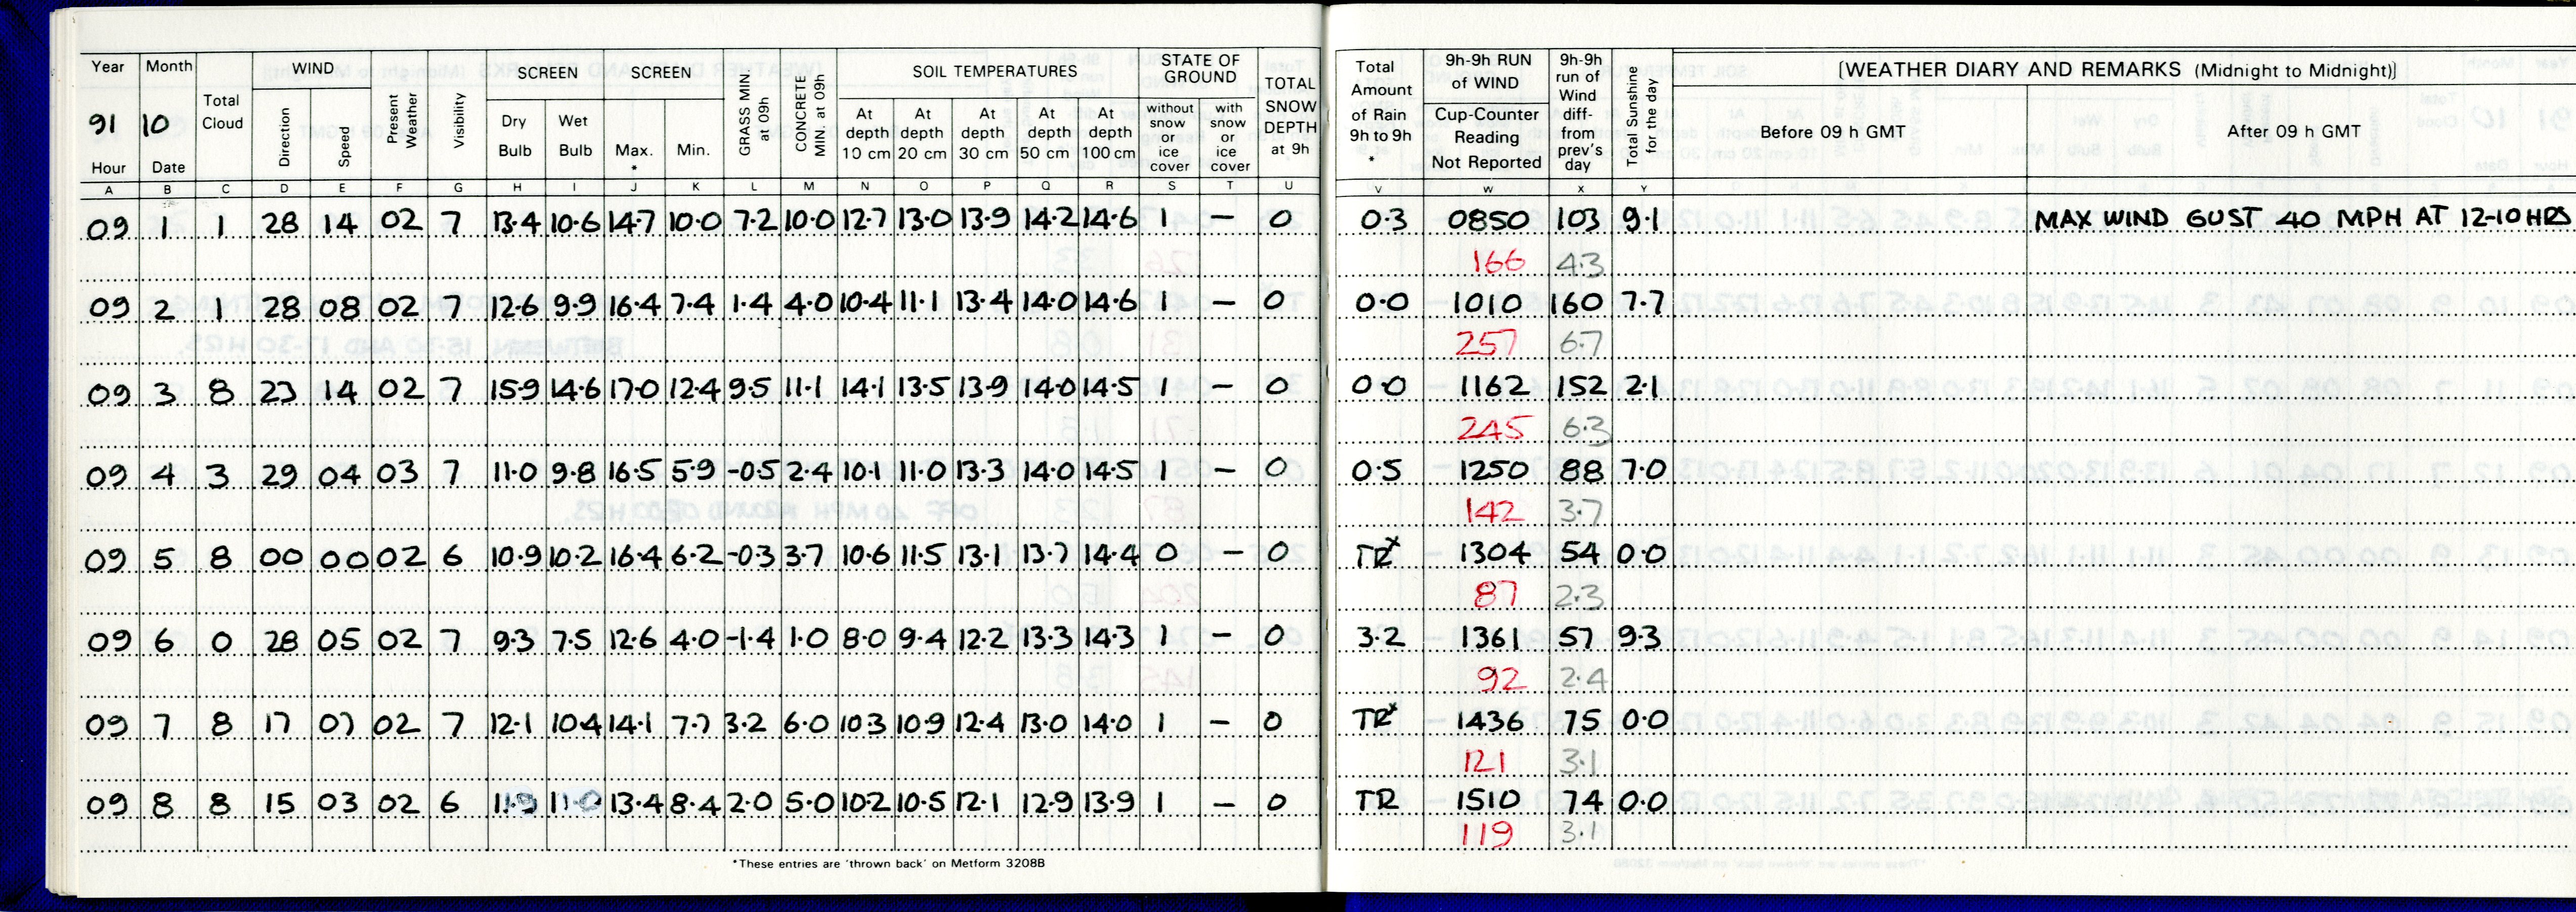 Year Month Total Cloud WIND Present Weather Visibility SCREEN SCREEN GRASS MIN. at 09h CONCRETE MIN. at 09h SOIL TEMPERATURES STATE OF GROUND TOTAL SNOW DEPTH at 9h Total Amount of Rain 9h to 9h * 9h-9h RUN of WIND 9h-9h run of Wind diff- from prev's day Total Sunshine for the day [WEATHER DIARY AND REMARKS (Midnight to Midnight)]
91 10 Direction Speed Dry Bulb Wet Bulb Max. * Min. At depth 10 cm At depth 20 cm At depth 30 cm At depth 50 cm At depth 100 cm without snow or ice cover with snow or ice cover Cup-Counter Reading Not Reported Before 09 h GMT After 09 h GMT
Hour Date
A B C D E F G H I J K L M N O P Q R S T U V W X Y
09 1 1 28 14 02 7 13.4 10.6 14.7 10.0 7.2 10.0 12.7 13.0 13.9 14.2 14.6 1 — 0 0.3 0850 103 9.1 MAX WIND GUST 40 MPH AT 12-10 HRS
166 4.3
09 2 1 28 08 02 7 12.6 9.9 16.4 7.4 1.4 4.0 10.4 11.1 13.4 14.0 14.6 1 — 0 0.0 1010 160 7.7
257 6.7
09 3 8 23 14 02 7 15.9 14.6 17.0 12.4 9.5 11.1 14.1 13.5 13.9 14.0 14.5 1 — 0 0.0 1162 152 2.1
245 6.3
09 4 3 29 04 03 7 11.0 9.8 16.5 5.9 -0.5 2.4 10.1 11.0 13.3 14.0 14.5 1 — 0 0.5 1250 88 7.0
142 3.7
09 5 8 00 00 02 6 10.9 10.2 16.4 6.2 -0.3 3.7 10.6 11.5 13.1 13.7 14.4 0 — 0 TRx 1304 54 0.0
87 2.3
09 6 0 28 05 02 7 9.3 7.5 12.6 4.0 -1.4 1.0 8.0 9.4 12.2 13.3 14.3 1 — 0 3.2 1361 57 9.3
92 2.4
09 7 8 17 07 02 7 12.1 10.4 14.1 7.7 3.2 6.0 10.3 10.9 12.4 13.0 14.0 1 — 0 TRx 1436 75 0.0
121 3.1
09 8 8 15 03 02 6 11.9 11.0 13.4 8.4 2.0 5.0 10.2 10.5 12.1 12.9 13.9 1 — 0 TR 1510 74 0.0
119 3.1
*These entries are 'thrown back' on Metform 3208B